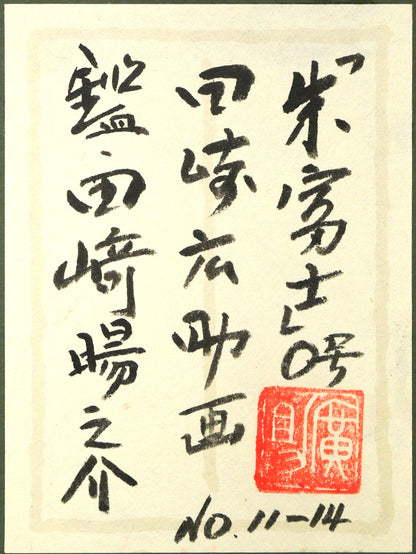 「朱富士」0号
田崎広助画
鑑田﨑暘之介
廣助
NO. 11-14